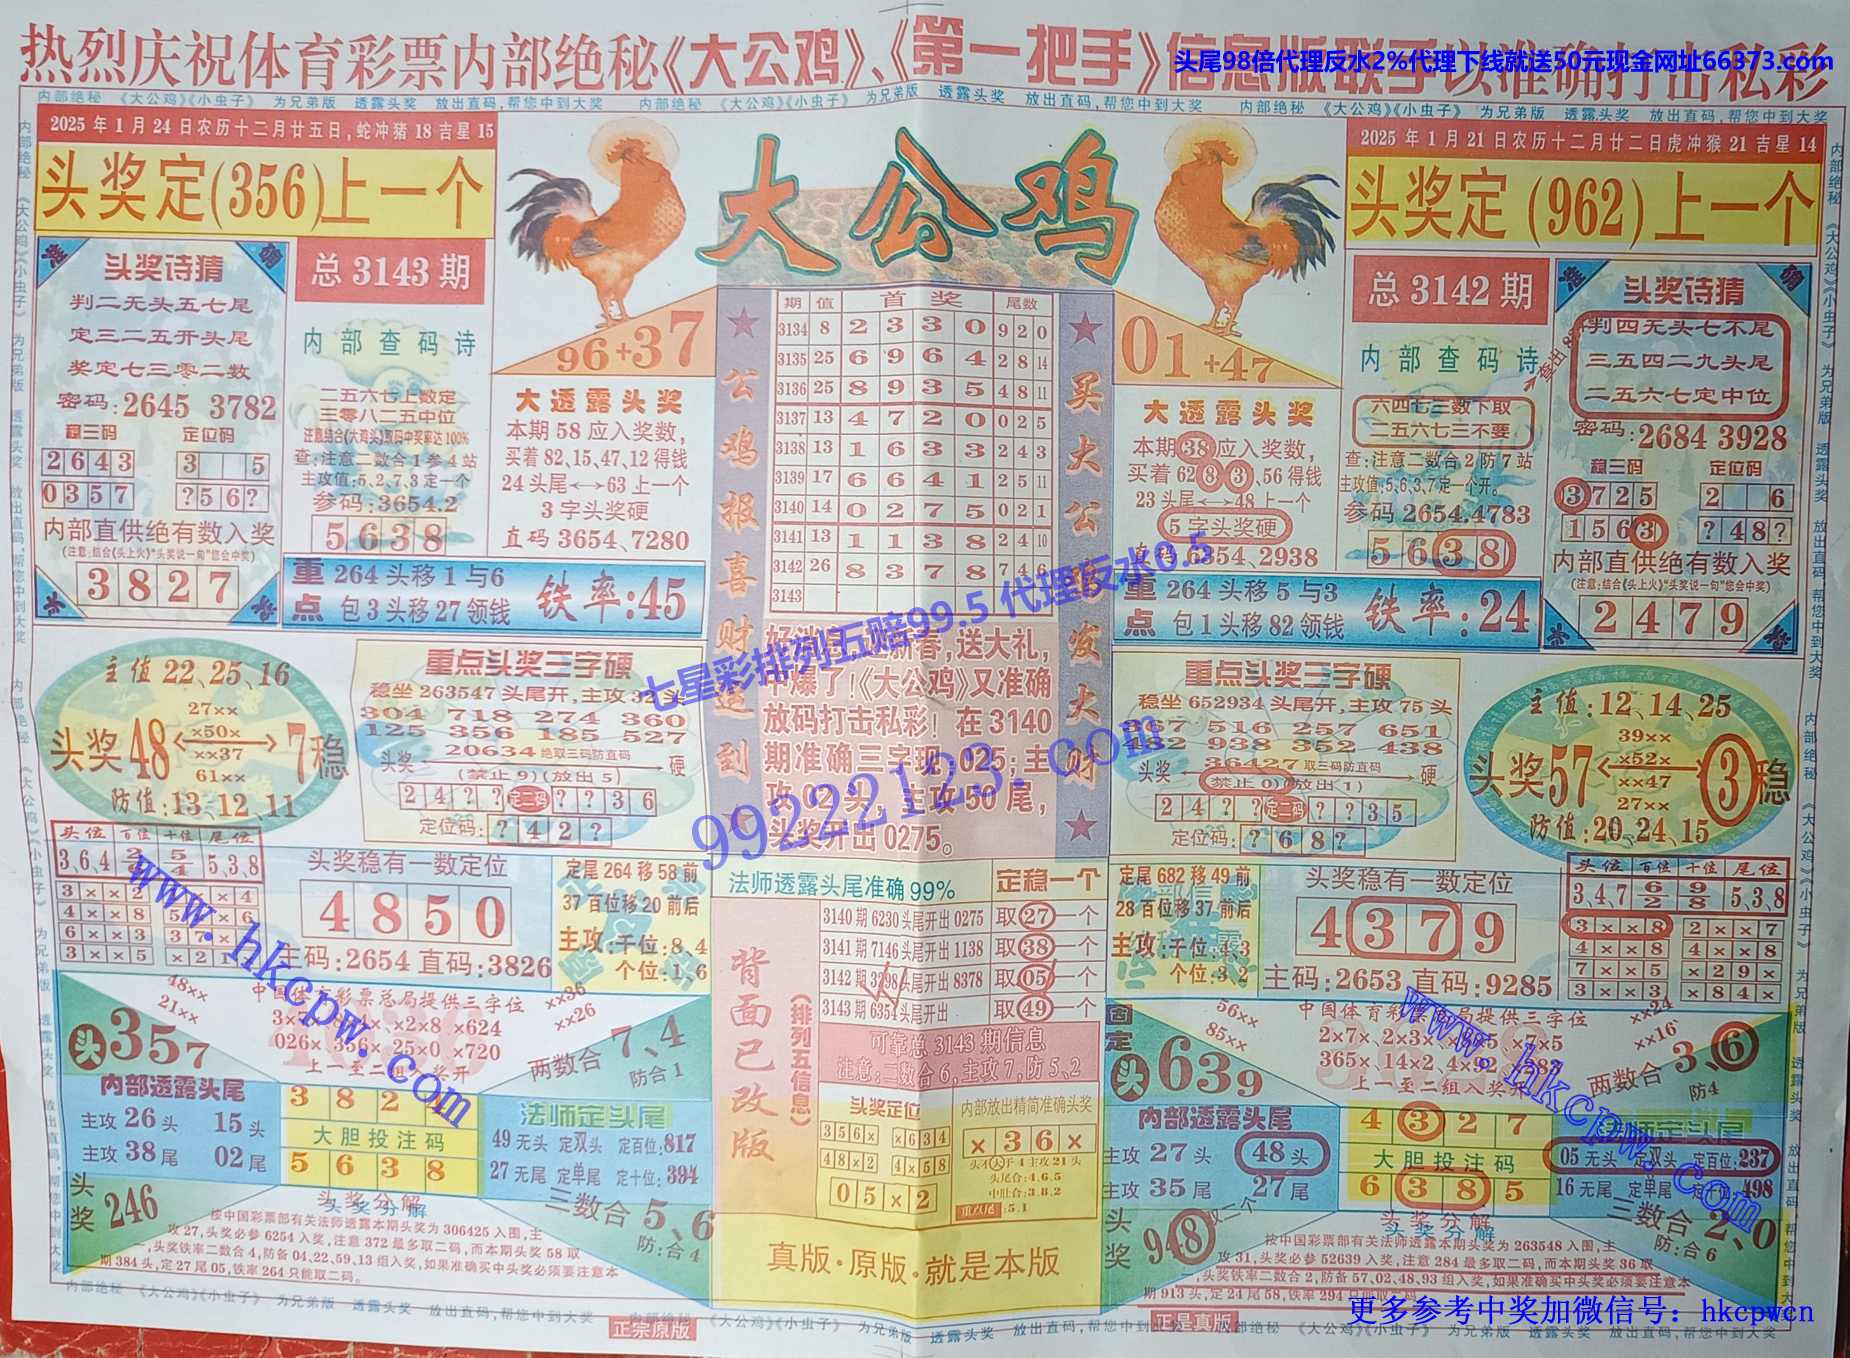 热烈庆祝体育彩票内部绝秘《大公鸡》、《第一把手》信息版联手以准确打击私彩
头尾98倍代理反水2%代理下线就送50元现金网址66373.com
内部绝秘 《大公鸡》《小虫子》 为兄弟版 透露头奖 放出直码,帮您中到大奖
2025年1月24日农历十二月廿五日,蛇冲猪18吉星15
头奖定(356)上一个
准 确
头奖诗猜
判二无头五七尾
定三二五开头尾
奖定七三零二数
密码:2645 3782
稳三码 定位码
2643 3 5
0357 ?56?
内部直供绝有数入奖
(注意:结合《头上火》"头奖说一句"您会中奖)
3827
总3143期
内部查码诗
二五六七上数定
三零八二五中位
注意结合《大鸡头》取码中奖率达100%
查:注意二数合1参4站
主攻值:5、2、7、3定一个
参码:3654.2
5638
96+37
大透露头奖
本期58应入奖数,
买着82、15、47、12得钱
24头尾←→63上一个
3字头奖硬
直码3654、7280
重点
264头移1与6
包3头移27领钱
铁率:45
大公鸡
公鸡报喜财运到
买大公鸡发大财
期 值 首奖 尾数
3134 8 2 3 3 0 9 2 0
3135 25 6 9 6 4 2 8 14
3136 25 8 9 3 5 4 8 11
3137 13 4 7 2 0 0 2 5
3138 13 1 6 3 3 2 4 3
3139 17 6 6 4 1 2 5 11
3140 14 0 2 7 5 0 2 1
3141 13 1 1 3 8 2 4 10
3142 26 8 3 7 8 7 4 6
3143
新春,送大礼,
中爆了!《大公鸡》又准确
放码打击私彩!在3140
期准确三字现025;主
攻02头,主攻50尾,
头奖开出0275。
七星彩排列五赔99.5 代理反水0.5
99222123.com
2025年1月21日农历十二月廿二日虎冲猴21吉星14
头奖定(962)上一个
总3142期
内部查码诗
六四七三数下取
二五六七三不要
查:注意二数合2防7站
主攻值:5、6、3、7定一个开。
参码2654.4783
5638
01+47
大透露头奖
本期38应入奖数,
买着62、8、3、56得钱
23头尾←→48上一个
5字头奖硬
直码6354、2938
重点
264头移5与3
包1头移82领钱
铁率:24
准 确
头奖诗猜
判四无头七不尾
三五四二九头尾
二五六七定中位
密码:2684 3928
稳三码 定位码
3725 2 6
1563 ?48?
内部直供绝有数入奖
(注意:结合《头上火》"头奖说一句"您会中奖)
2479
主值22、25、16
27××
头奖48 ×50× 7稳
××37
61××
防值:13、12、11
重点头奖三字硬
稳坐263547头尾开,主攻32头
304 718 274 360
125 356 185 527
20634绝取三码防直码
头奖 硬
(禁止9)(放出5)
24??定二码??36
定位码:?42?
重点头奖三字硬
稳坐652934头尾开,主攻75头
367 516 257 651
482 938 352 438
36427取三码防直码
头奖 硬
(禁止0)(放出1)
24??定二码??35
定位码:?68?
主值:12、14、25
39××
头奖57 ×52× 3稳
××47
27××
防值:20、24、15
头位 百位 十位 尾位
3,6,4 5,3,8
头奖稳有一数定位
4850
主码:2654直码:3826
定尾264移58前
37百位移20前后
主攻:千位:8、4
个位:1、6
法师透露头尾准确99% 定稳一个
3140期6230头尾开出0275 取27一个
3141期7146头尾开出1138 取38一个
3142期3398头尾开出8378 取05一个
3143期6354头尾开出 取49一个
背面已改版
(排列五信息)
可靠总3143期信息
注意:二数合6,主攻7,防5、2
头奖定位
356× ×634
48×2 4×58
05×2
内部放出精简准确头奖
×36×
头尾合:4.6.5
中肚合:3.8.2
重点尾:5.1
真版·原版·就是本版
定尾682移49前
28百位移37前后
主攻:千位:4、3
个位:3、2
头奖稳有一数定位
4379
主码:2653直码:9285
头位 百位 十位 尾位
3,4,7 6/2 9/8 5,3,8
3××8 2××7
4××8 4××8
7××5 ×29×
3××3 ×84×
48××
21××
中国体育彩票总局提供三字位
×2×8 ×624
026× 356× 25×0 ×720
××36
××26
头357
7、4
两数合
防合1
内部透露头尾
主攻26头 15头
主攻38尾 02尾
大胆投注码
5638
法师定头尾
49无头 定双头 定百位:817
27无尾 定单尾 定十位:394
三数合5、6
防:合4
头奖246
头奖分解
按中国彩票部有关法师透露本期头奖为306425入围,主
攻27,头奖必参6254入奖,注意372最多取二码,而本期头奖58取
,头奖铁率二数合4,防备04,22,59,13组入奖,如果准确买中头奖必须要注意本
期384头,定27尾05,铁率264只能取二码。
固定
56××
85××
中国体育彩票总局提供三字位
××24
××16
365× 14×2
上一至二组入奖开
头639
3、6
两数合
防4
内部透露头尾
主攻27头 48头
主攻35尾 27尾
4327
大胆投注码
6385
法师定头尾
05无头 定双头 定百位:237
16无尾 定单尾 定十位:498
三数合2、0
防:合6
头奖948
取二个
头奖分解
按中国彩票部有关法师透露本期头奖为263548入围,主
攻31,头奖必参52639入奖,注意284最多取二码,而本期头奖36取
,头奖铁率二数合2,防备57,02,48,93组入奖,如果准确买中头奖必须要注意本
期913头,定24尾58,铁率294只能取二码
www.hkcpw.com
www.hkcpw.com
更多参考中奖加微信号: hkcpwcn
正宗原版
正是真版
内部绝秘 《大公鸡》《小虫子》 为兄弟版 透露头奖 放出直码,帮您中到大奖